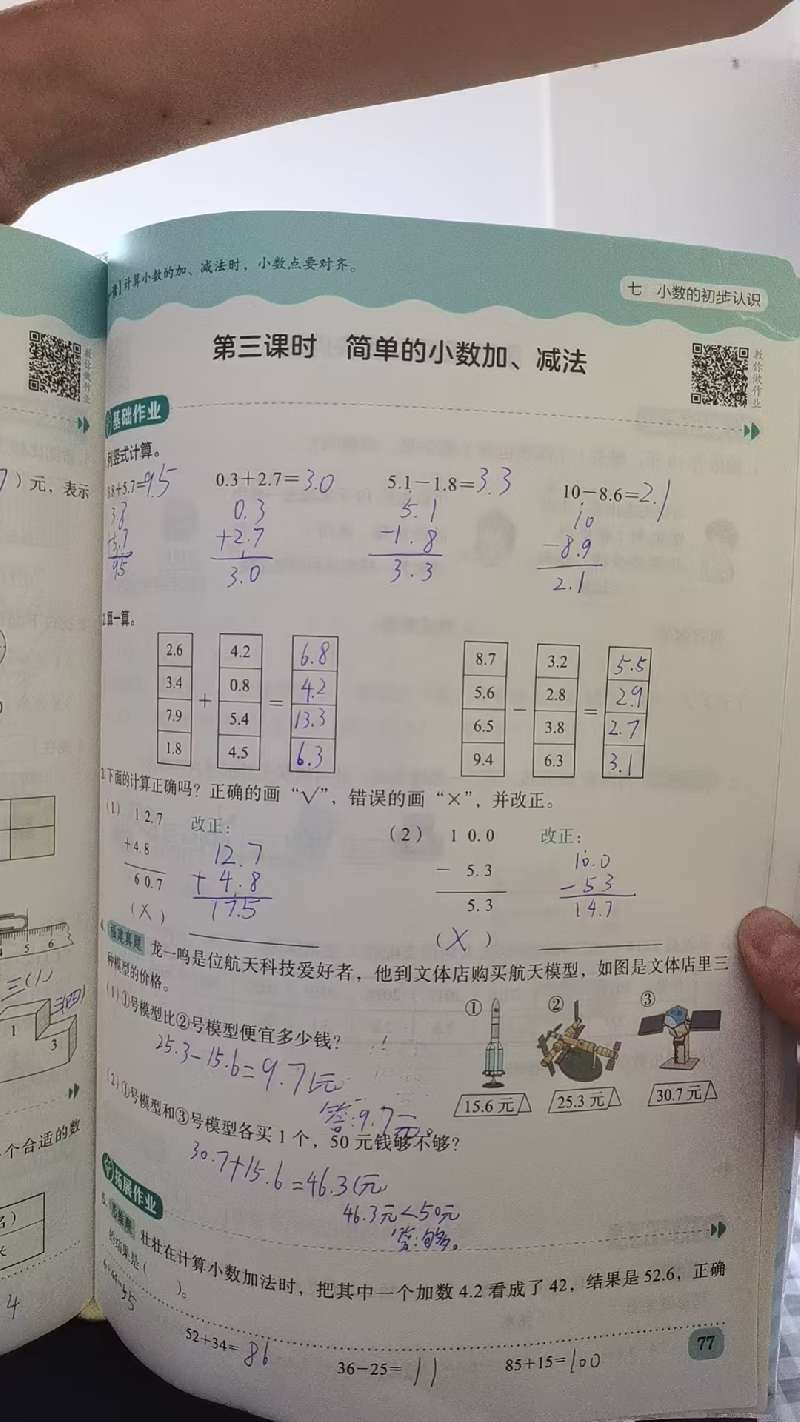 计算小数的加、减法时，小数点要对齐。
七 小数的初步认识
第三课时 简单的小数加、减法
教你做作业
教你做作业
基础作业
列竖式计算。
）元，表示
3.8+5.7=9.5
0.3+2.7=3.0
5.1-1.8=3.3
10-8.6=2.1
3.8
+5.7
9.5
0.3
+2.7
3.0
5.1
-1.8
3.3
10
-8.9
2.1
2.算一算。
2.6 4.2 6.8 8.7 3.2 5.5
3.4 0.8 4.2 5.6 2.8 2.9
+ = - =
7.9 5.4 13.3 6.5 3.8 2.7
1.8 4.5 6.3 9.4 6.3 3.1
3.下面的计算正确吗？正确的画“√”，错误的画“×”，并改正。
(1) 12.7
+4.8
60.7
(X)
改正：
12.7
+4.8
17.5
(2) 10.0
- 5.3
5.3
(X)
改正：
10.0
-53
14.7
4. 龙一鸣是位航天科技爱好者，他到文体店购买航天模型，如图是文体店里三
种模型的价格。
(1)①号模型比②号模型便宜多少钱？
25.3-15.6=9.7元
答:9.7元。
① ② ③
15.6元 25.3元 30.7元
(2)①号模型和③号模型各买1个，50元钱够不够？
30.7+15.6=46.3元
46.3元<50元
答:够。
拓展作业
5. 壮壮在计算小数加法时，把其中一个加数4.2看成了42，结果是52.6，正确
的结果是（ ）。
52+34=86
36-25=11
85+15=100
77
个合适的数
5 6
1
3
4